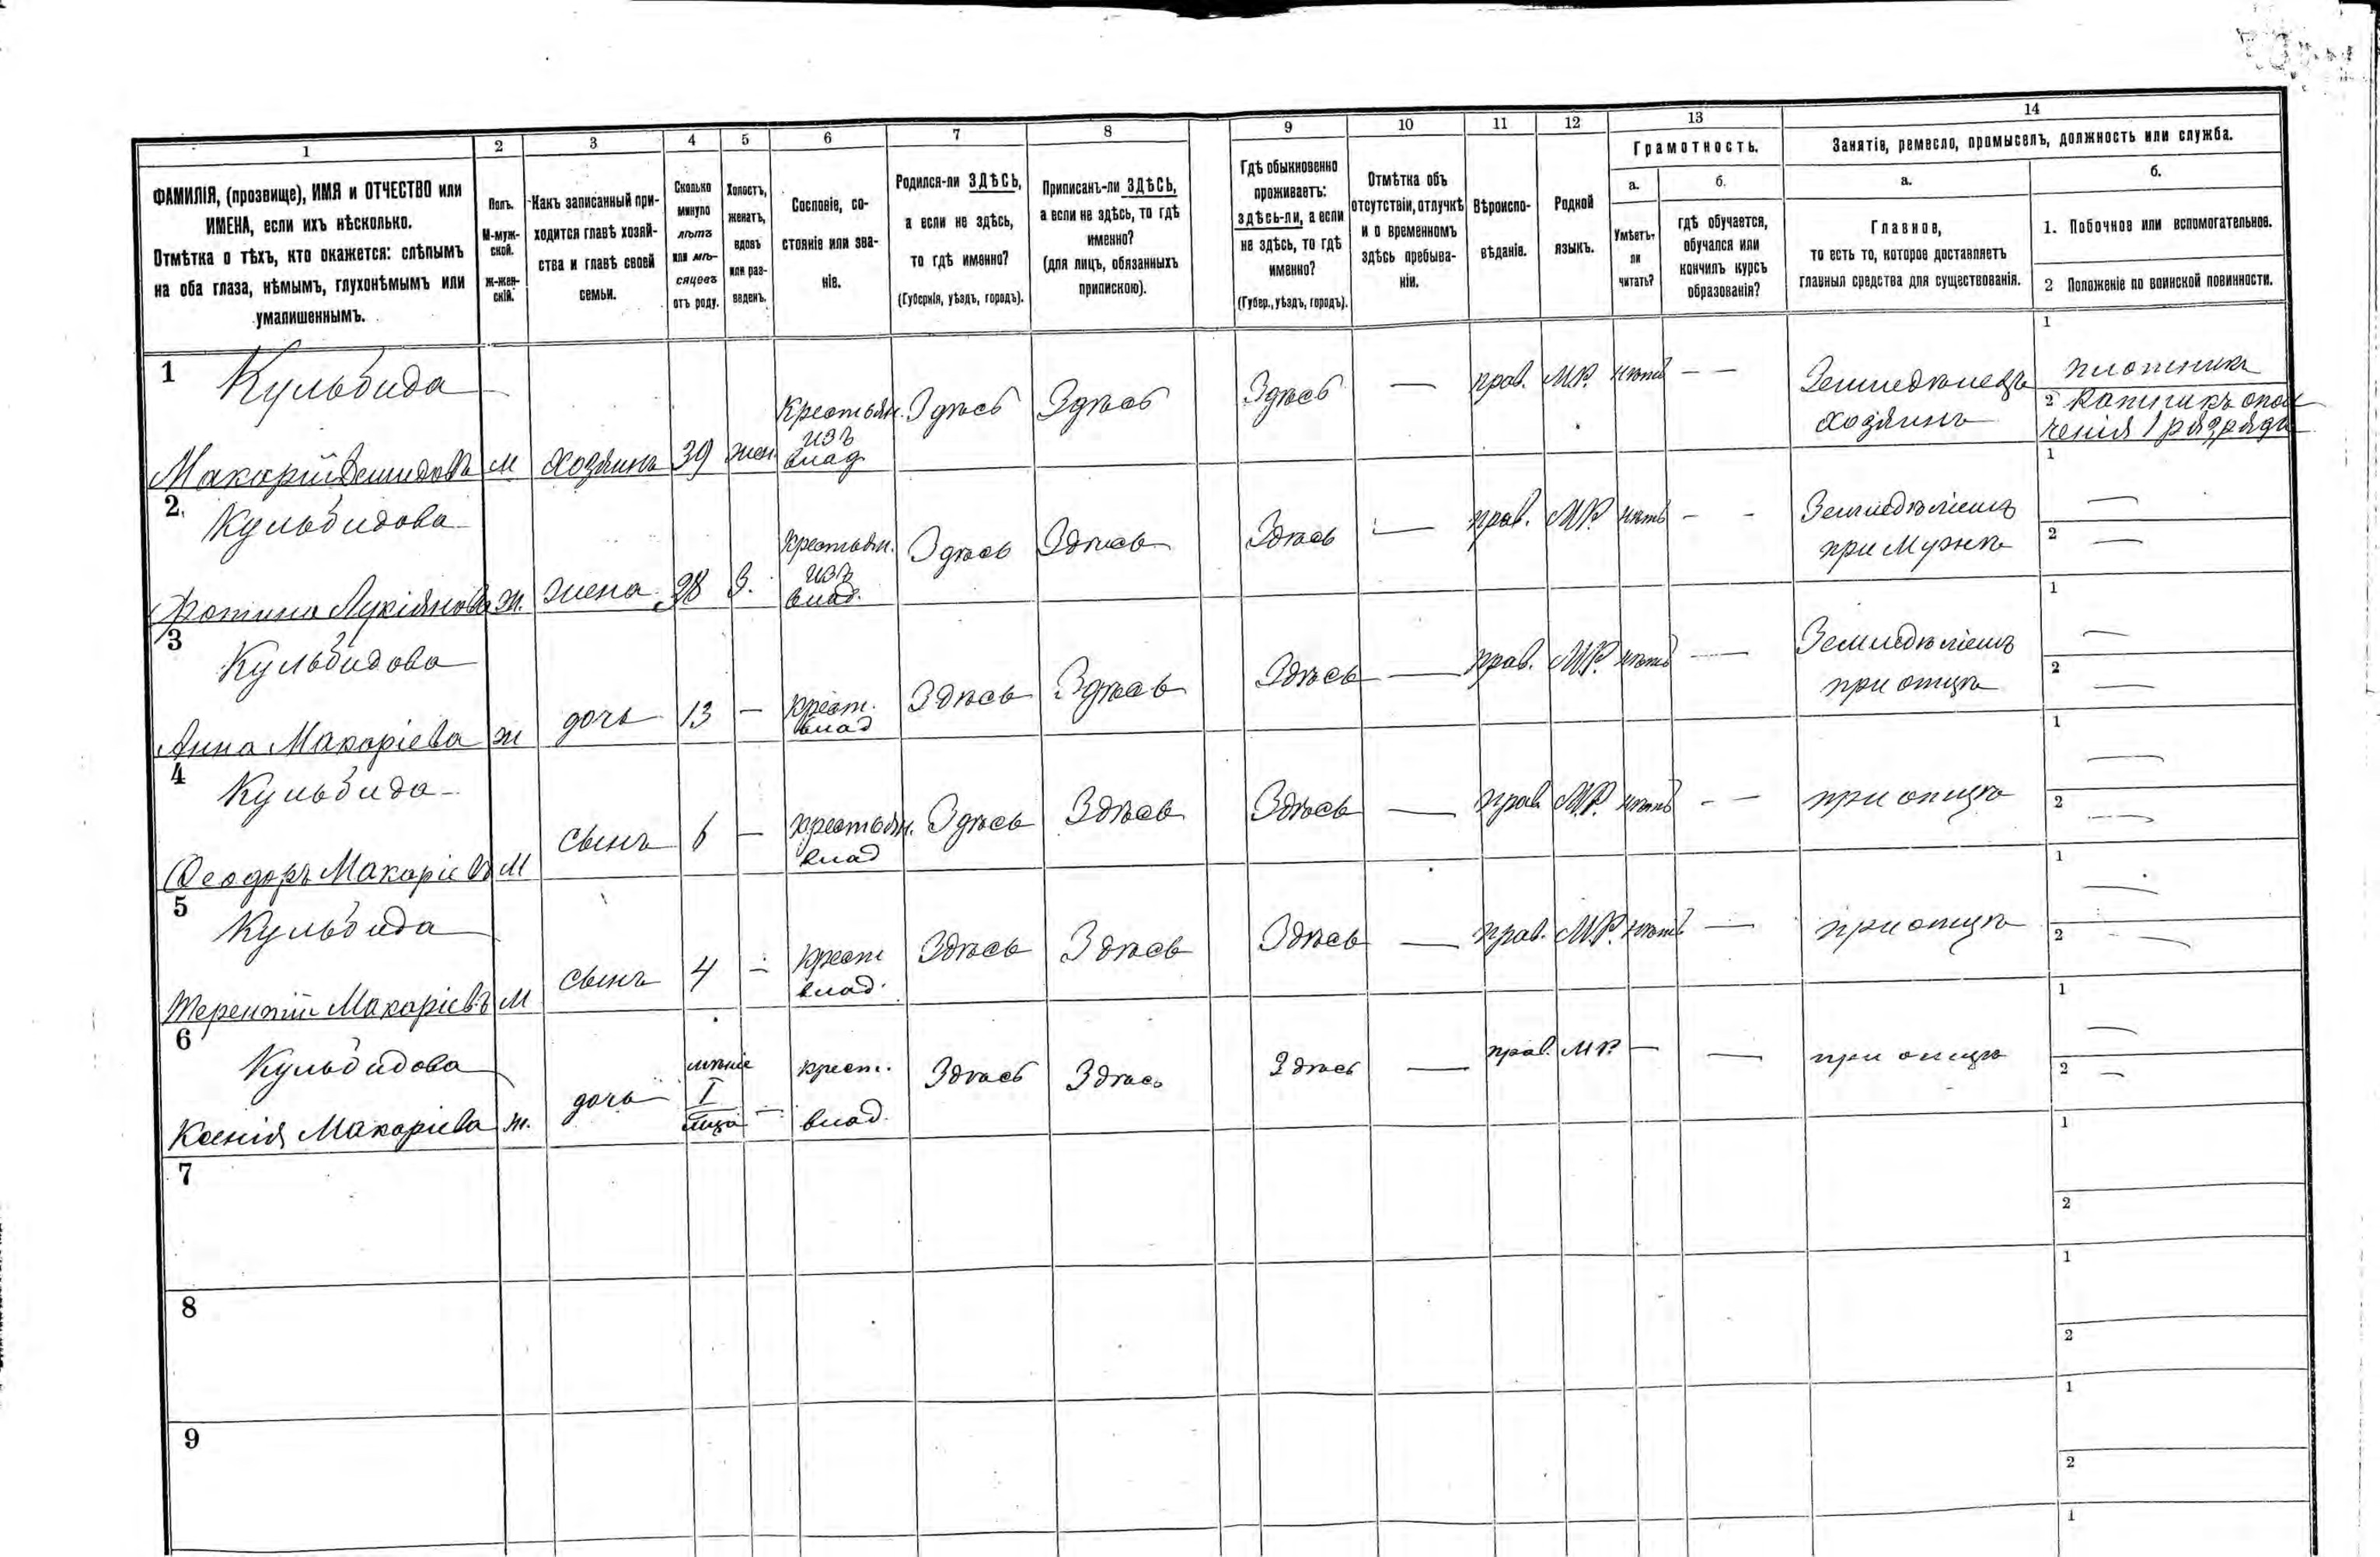 1 2 3 4 5 6 7 8 9 10 11 12 13 14
ФАМИЛІЯ, (прозвище), ИМЯ и ОТЧЕСТВО или
ИМЕНА, если ихъ нѣсколько.
Отмѣтка о тѣхъ, кто окажется: слѣпымъ
на оба глаза, нѣмымъ, глухонѣмымъ или
умалишеннымъ.
Полъ.
М-муж-
ской.
Ж-жен-
скій.
Какъ записанный при-
ходится главѣ хозяй-
ства и главѣ своей
семьи.
Сколько
минуло
лѣтъ
или мѣ-
сяцевъ
отъ роду.
Холостъ,
женатъ,
вдовъ
или раз-
веденъ.
Сословіе, со-
стояніе или зва-
ніе.
Родился-ли ЗДѢСЬ,
а если не здѣсь,
то гдѣ именно?
(Губернія, уѣздъ, городъ).
Приписанъ-ли ЗДѢСЬ,
а если не здѣсь, то гдѣ
именно?
(для лицъ, обязанныхъ
припискою).
Гдѣ обыкновенно
проживаетъ:
здѣсь-ли, а если
не здѣсь, то гдѣ
именно?
(Губер., уѣздъ, городъ).
Отмѣтка объ
отсутствіи, отлучкѣ
и о временномъ
здѣсь пребыва-
ніи.
Вѣроиспо-
вѣданіе.
Родной
языкъ.
Грамотность.
а.
Умѣетъ-
ли
читать?
б.
гдѣ обучается,
обучался или
кончилъ курсъ
образованія?
Занятіе, ремесло, промыселъ, должность или служба.
а.
Главное,
то есть то, которое доставляетъ
главныя средства для существованія.
б.
1. Побочное или вспомогательное.
2 Положеніе по воинской повинности.
1 Кульбида
Макарій Демидовъ м хозяинъ 39 жен. Крестьян. изъ влад. Здѣсь Здѣсь Здѣсь — прав. М.Р. нѣтъ — —
Земледѣлецъ
хозяинъ
1 плотникъ
2 Ратникъ опол
ченія 1 разряда
2. Кульбидова
Фотина Лукіянова ж. жена 38 З. Крестьян. изъ влад. Здѣсь Здѣсь Здѣсь — прав. М.Р. нѣтъ - -
Земледѣліемъ
при мужѣ
1 —
2 —
3 Кульбидова
Анна Макаріева ж дочь 13 — Крест. влад Здѣсь Здѣсь Здѣсь — прав. М.Р. нѣтъ —
Земледѣліемъ
при отцѣ
1 —
2 —
4 Кульбида
Ѳеодоръ Макаріевъ м сынъ 6 — крестьян. влад Здѣсь Здѣсь Здѣсь — прав М.Р. нѣтъ - —
при отцѣ
1 —
2 —
5 Кульбида
Терентій Макаріевъ м сынъ 4 — крест влад. Здѣсь Здѣсь Здѣсь — прав. М.Р. нѣтъ —
при отцѣ
1 —
2 —
6 Кульбидова
Ксенія Макаріева ж. дочь I — крест. влад. Здѣсь Здѣсь Здѣсь — прав. М.Р. — —
при отцѣ
1 —
2 —
7
1
2
8
1
2
9
1
2
1